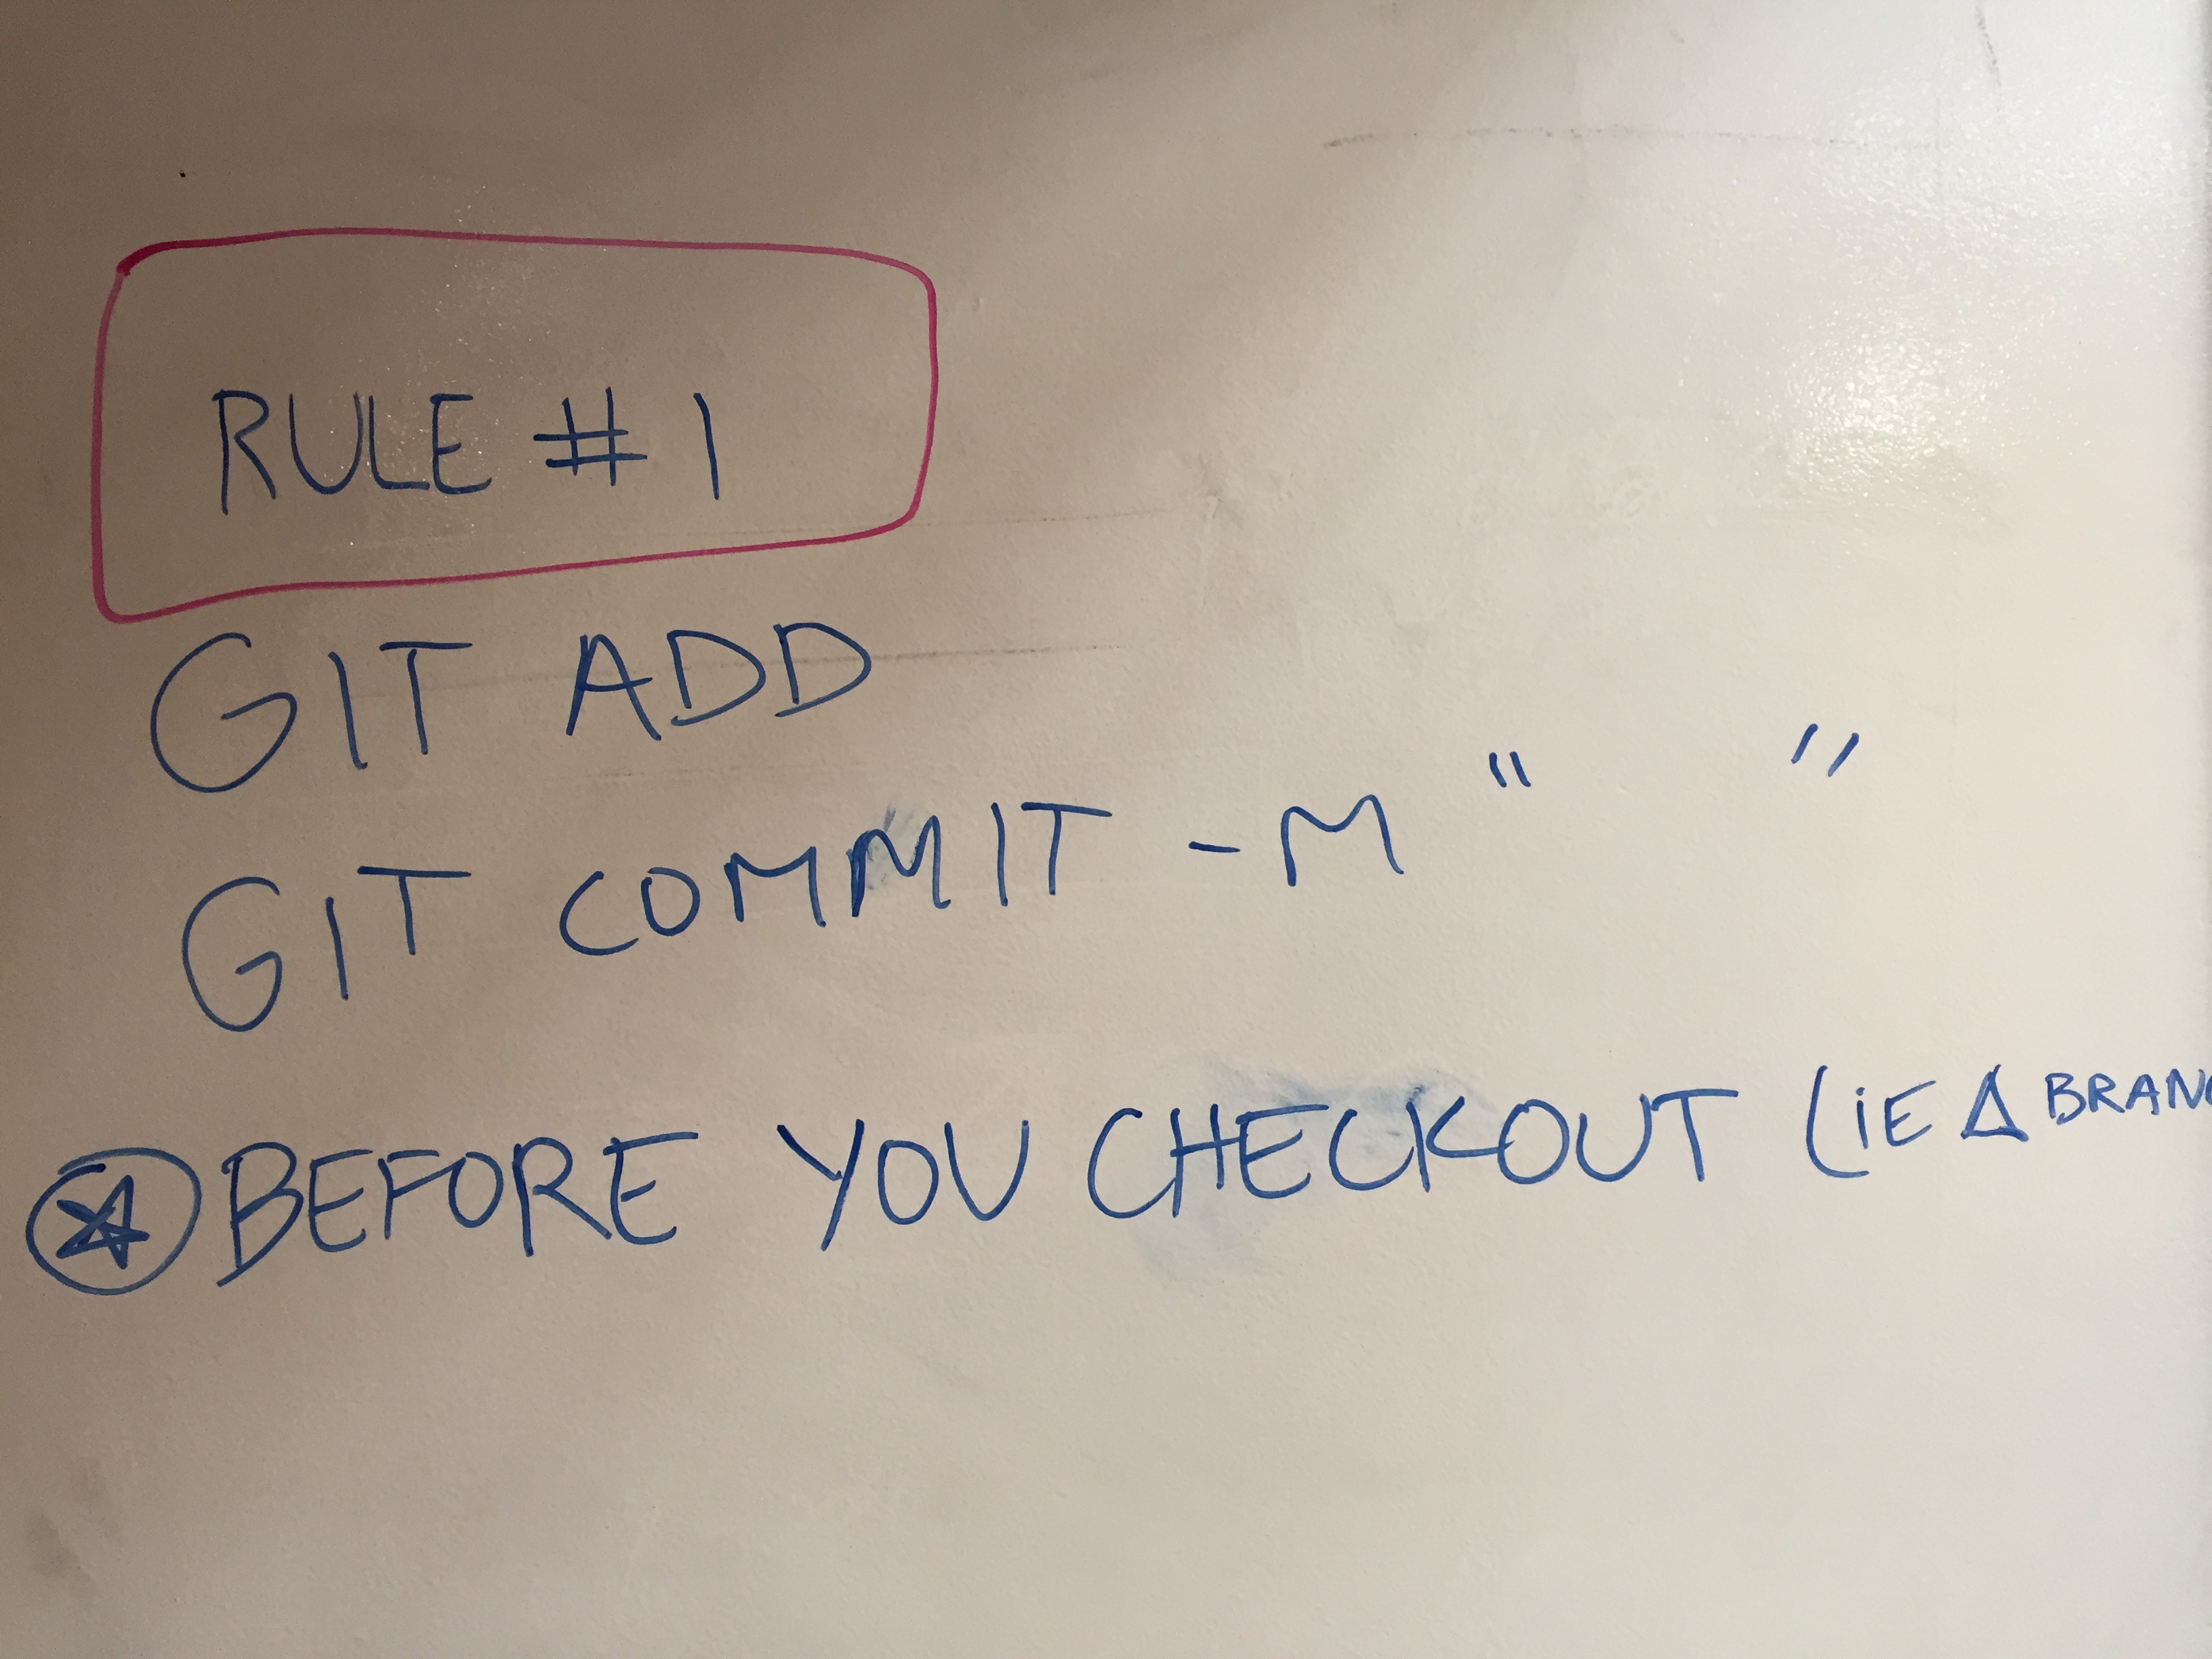 RULE #1
GIT ADD
GIT COMMIT -M " "
BEFORE YOU CHECKOUT (iE Δ BRANC